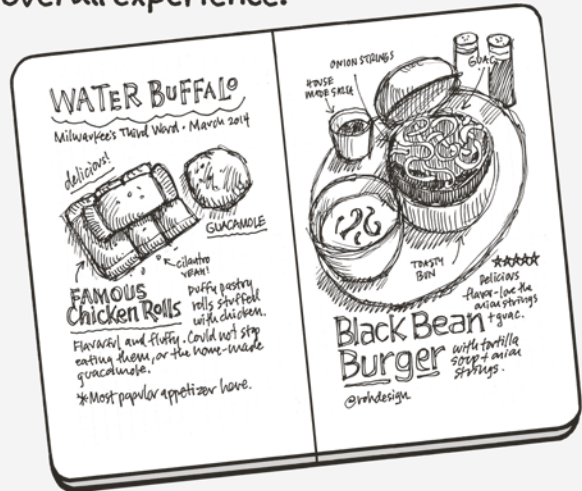 overall experience.
WATER BUFFALO
Milwaukee's Third Ward • March 2014
delicious!
GUACAMOLE
cilantro
YEAH!
FAMOUS
Chicken Rolls
Puffy pastry
rolls stuffed
with chicken.
Flavorful and fluffy. Could not stop
eating them, or the home-made
guacamole.
*Most popular appetizer here.
ONION STRINGS
HOUSE
MADE SALSA
GUAC
TOASTY
BUN
★★★★★
Delicious
flavor-love the
onion strings
+ guac.
Black Bean
Burger
with tortilla
soup + onion
strings.
@rohdesign